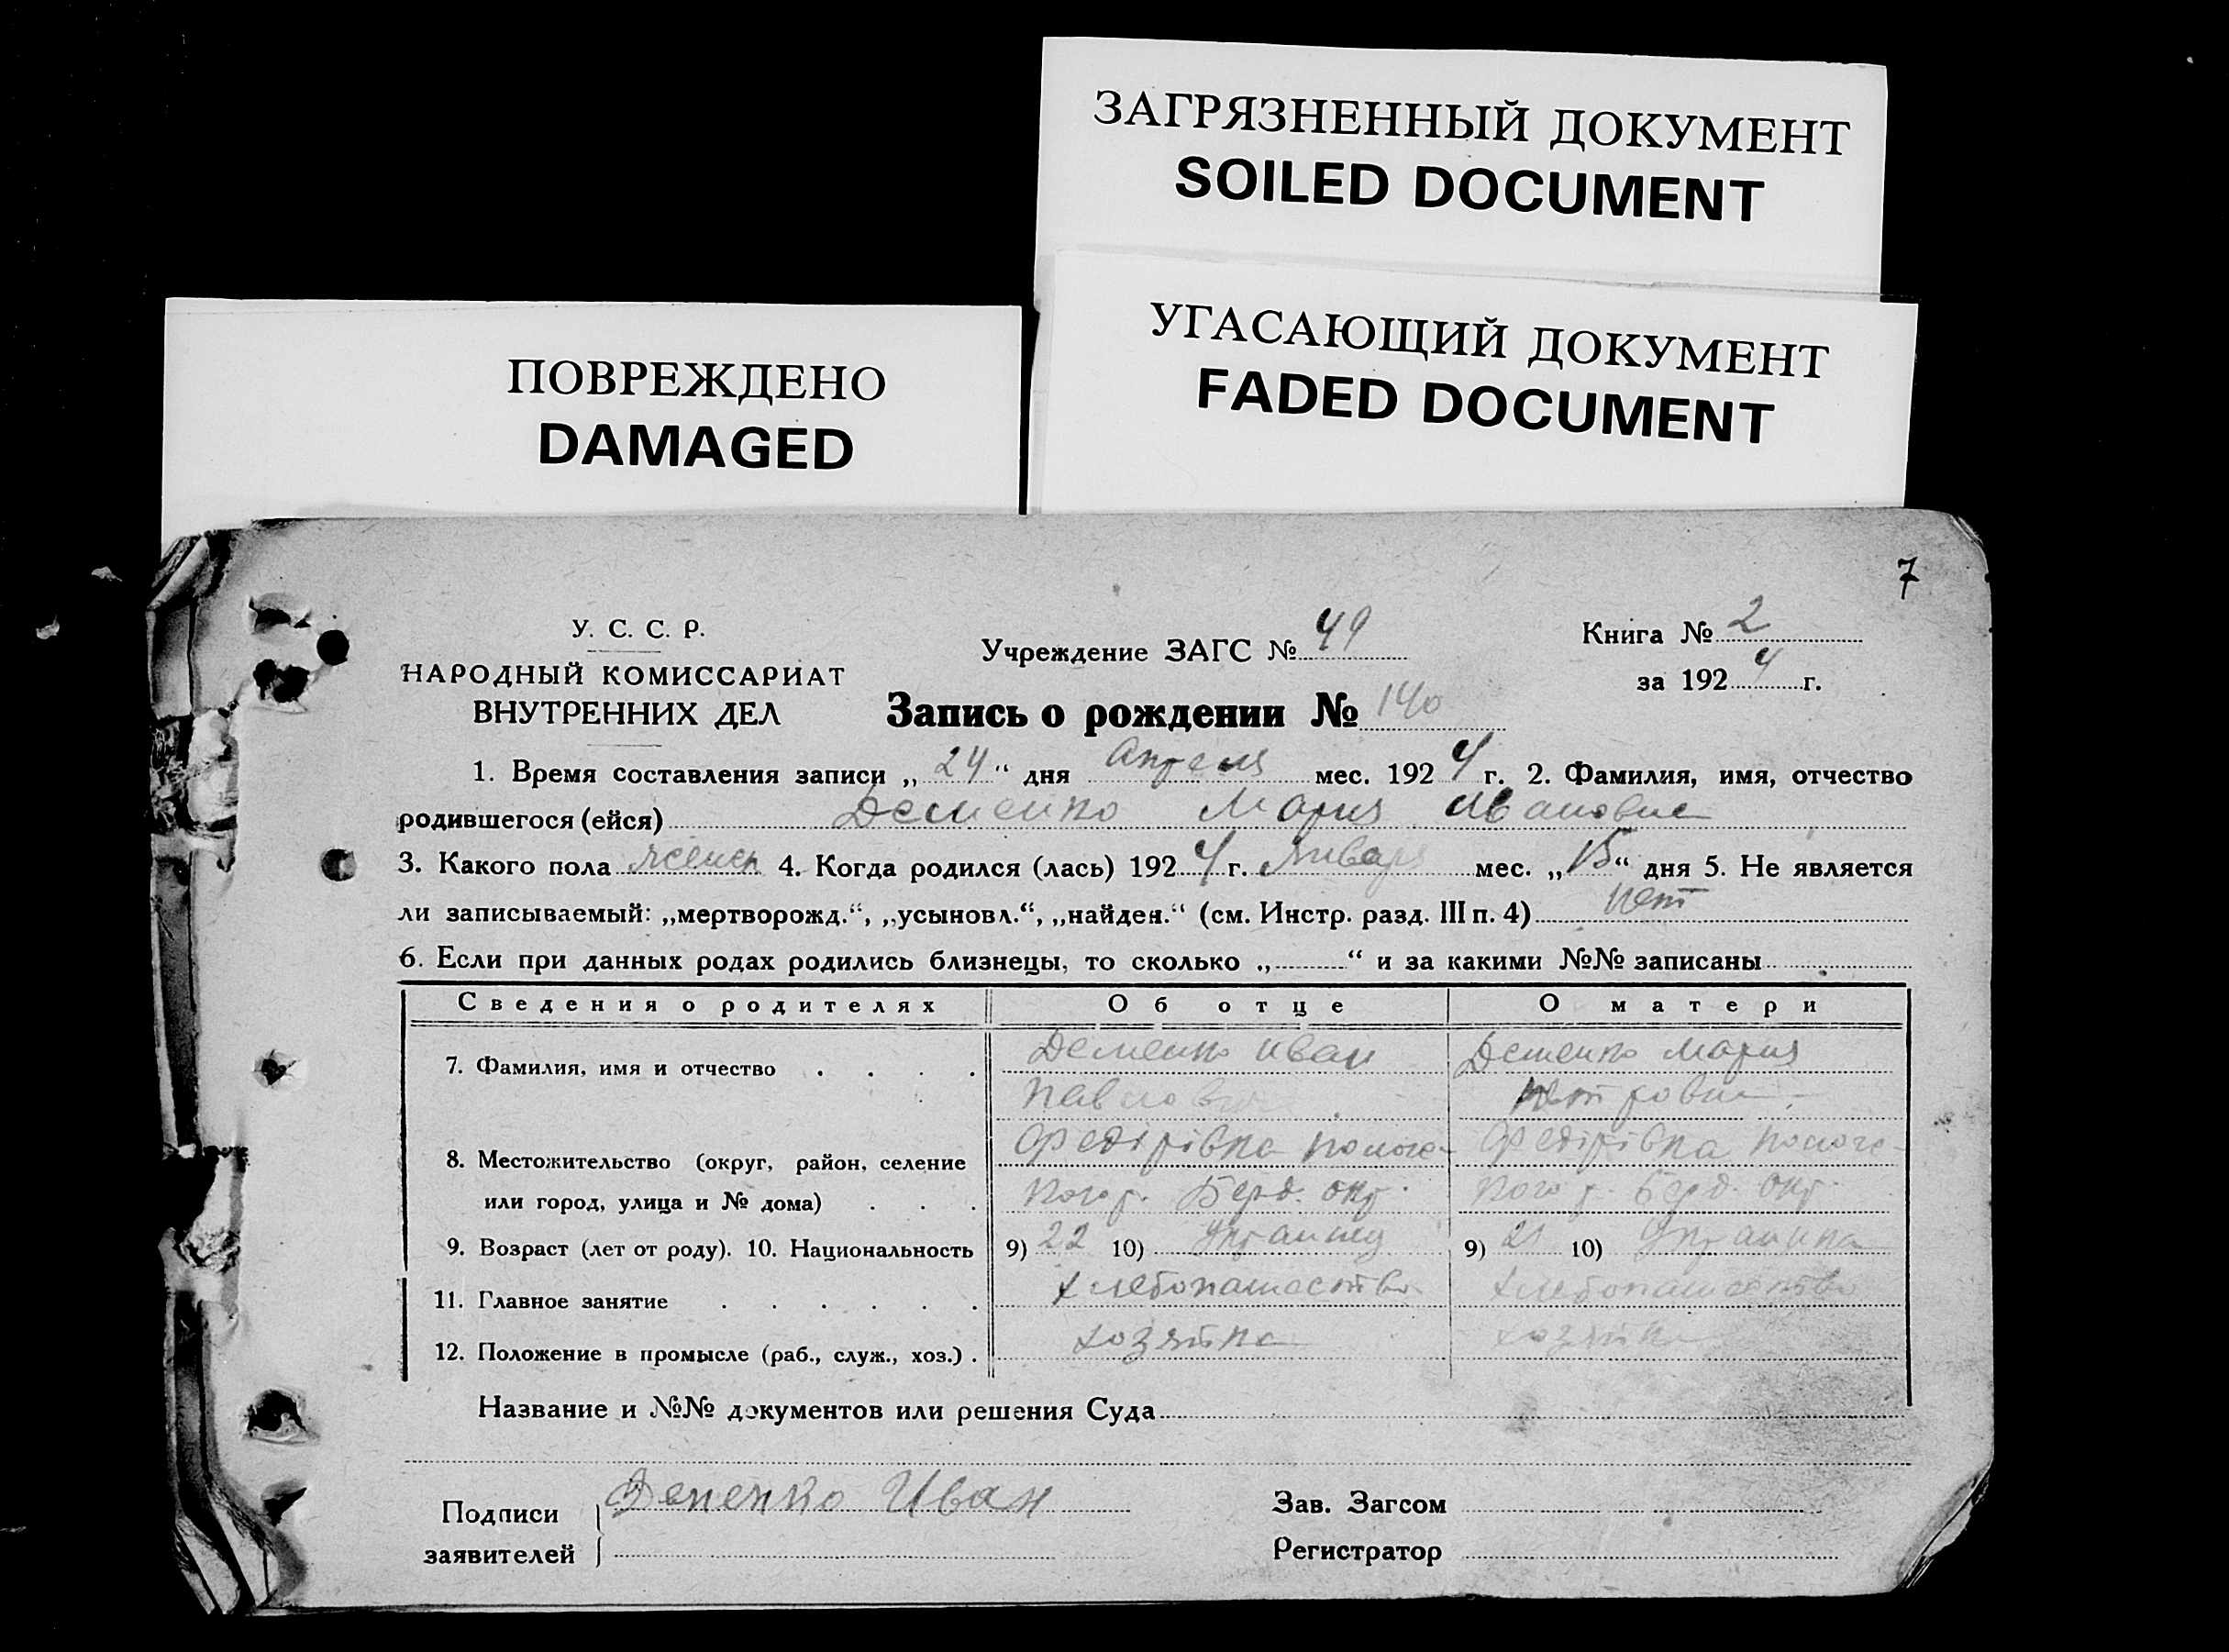 ЗАГРЯЗНЕННЫЙ ДОКУМЕНТ
SOILED DOCUMENT
УГАСАЮЩИЙ ДОКУМЕНТ
FADED DOCUMENT
ПОВРЕЖДЕНО
DAMAGED
7
У. С. С. Р.
НАРОДНЫЙ КОМИССАРИАТ
ВНУТРЕННИХ ДЕЛ
Учреждение ЗАГС № 49
Книга № 2
за 1924 г.
Запись о рождении № 140
1. Время составления записи „24“ дня Апреля мес. 1924 г. 2. Фамилия, имя, отчество
родившегося (ейся) Деменко Мария Ивановна
3. Какого пола женск 4. Когда родился (лась) 1924 г. Января мес. „15“ дня 5. Не является
ли записываемый: „мертворожд.“, „усыновл.“, „найден.“ (см. Инстр. разд. III п. 4) нет
6. Если при данных родах родились близнецы, то сколько „ “ и за какими №№ записаны
Сведения о родителях Об отце О матери
7. Фамилия, имя и отчество Деменко Иван Деменко Мария
Павлович Петровна
8. Местожительство (округ, район, селение Федірівка Федірівка
или город, улица и № дома) Берд. окр. Берд. окр.
9. Возраст (лет от роду). 10. Национальность 9) 22 10) Украинец 9) 21 10) Украинка
11. Главное занятие хлебопашество хлебопашество
12. Положение в промысле (раб., служ., хоз.)
Название и №№ документов или решения Суда
Подписи Деменко Иван Зав. Загсом
заявителей Регистратор